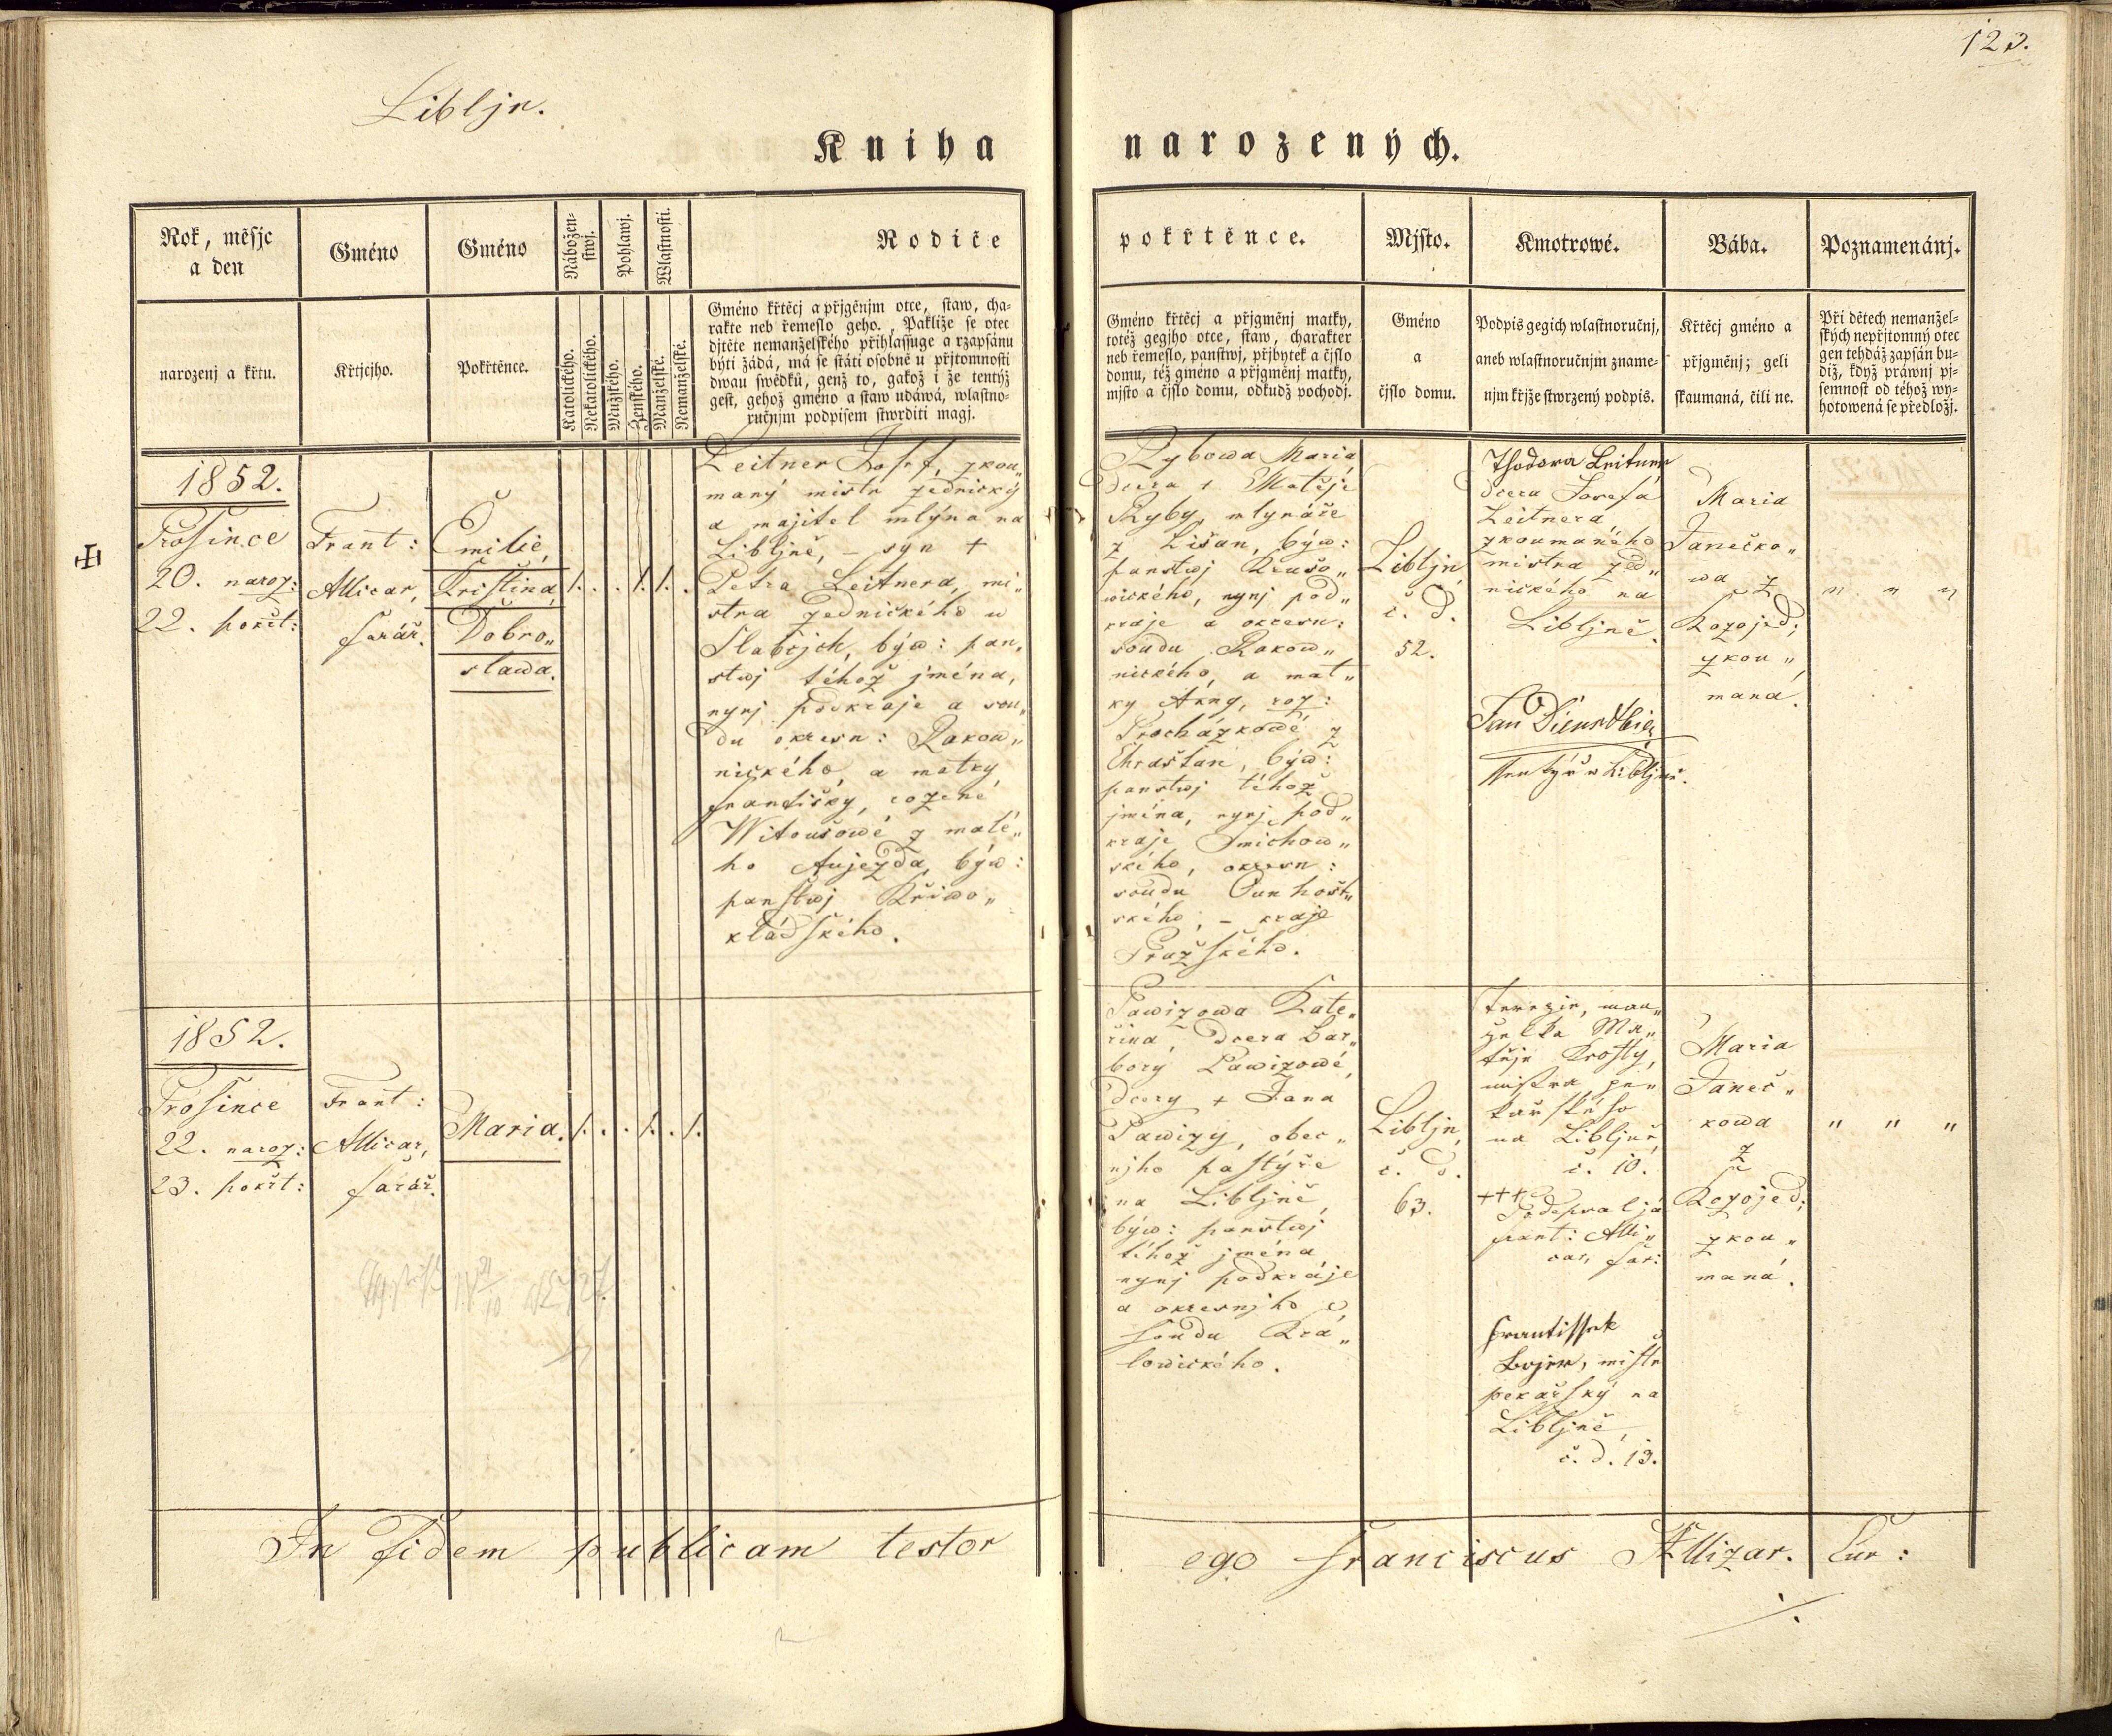 123.
Libljn.
Kniha narozených.
Rok, měsjc
a den
narozenj a křtu.
Gméno
Křtjcjho.
Gméno
Pokřtěnce.
Nábožen-
stwj.
Katolického.
Nekatolického.
Pohlawj.
Mužského.
Ženského.
Wlastnosti.
Manželské.
Nemanželské.
Rodiče
Gméno křtěcj a přjgěnjm otce, staw, cha-
rakte neb řemeslo geho. Pakliže se otec
djtěte nemanželského přihlassuge a rzapsánu
býti žádá, má se státi osobně u přjtomnosti
dwau swědků, genž to, gakož i že tentýž
gest, gehož gméno a staw udáwá, wlastno-
ručnjm podpisem stwrditi magj.
pokřtěnce.
Gméno křtěcj a přjgměnj matky,
totéž gegjho otce, staw, charakter
neb řemeslo, panstwj, přjbytek a čjslo
domu, též gméno a přjgměnj matky,
mjsto a čjslo domu, odkudž pochodj.
Mjsto.
Gméno
a
čjslo domu.
Kmotrowé.
Podpis gegich wlastnoručnj,
aneb wlastnoručnjm zname-
njm křjže stwrzený podpis.
Bába.
Křtěcj gméno a
přjgměnj; geli
skaumaná, čili ne.
Poznamenánj.
Při dětech nemanžel-
ských nepřjtomný otec
gen tehdáž zapsán bu-
diž, když práwnj pj-
semnost od téhož wy-
hotowená se předložj.
1852.
Prosince
20. naroz:
22. pokřt:
Frant:
Allicar,
farář.
Emilie,
Kristina,
Dobro„
slawa.
/. . . /. /. .
Leitner Josef, zkou„
maný mistr zednický
a majitel mlýna na
Libljně, – syn +
Petra Leitnera, mi„
stra zednického w
Slabcjch, býw: pan„
stwj téhož jména,
nynj podkraje a sou„
du okresn: Rakow„
nického, a matky
Františky, rozené
Witoušowé z malé„
ho Aujezda, býw:
panstwj Křiwo„
kládského.
Rybowa Maria
dcera + Matěje
Ryby, mlynáře
z Lišan, býw:
panstwj Krušo„
wického, nynj pod„
kraje a okresn:
soudu Rakow„
nického, a mat„
ky Anny, roz:
Procházkowé z
Chrašťan, býw:
panstwj téhož
jména, nynj pod„
kraje Smichow„
ského, okresn:
soudu Aunhošt„
ského, – kraje
Pražského.
Libljn,
č. d.
52.
Thodora Leitner
dcera Josefa
Leitnera
zkoumaného
mistra zed„
nického na
Libljně.
Jan Dienstbier
w Libljně.
Maria
Janečko„
wa z
Kozojed;
zkou„
maná.
„ „ „
1852.
Prosince
22. naroz:
23. pokřt:
Frant:
Allicar,
farář.
Maria.
/. . . /. . /.
Pawizowa Kate„
řina, dcera Bar„
bory Pawizowé,
dcery + Jana
Pawizy, obec„
njho pastýře
na Libljně,
býw: panstwj
téhož jména,
nynj podkraje
a okresnjho
soudu Kra„
lowického.
Libljn,
č. d.
63.
Terezie, man„
želka Ma„
těje Krosty,
mistra pe„
kařského
na Libljně,
č. 10.
+++
Podepsal já
Frant: Alli„
car, far:
Frantissek
Bojer, mistr
pekařský na
Libljně,
č. d. 13.
Maria
Janeč„
kowa
z
Kozojed;
zkou„
maná.
„ „ „
In fidem publicam testor ego Franciscus Allizar. Cur: